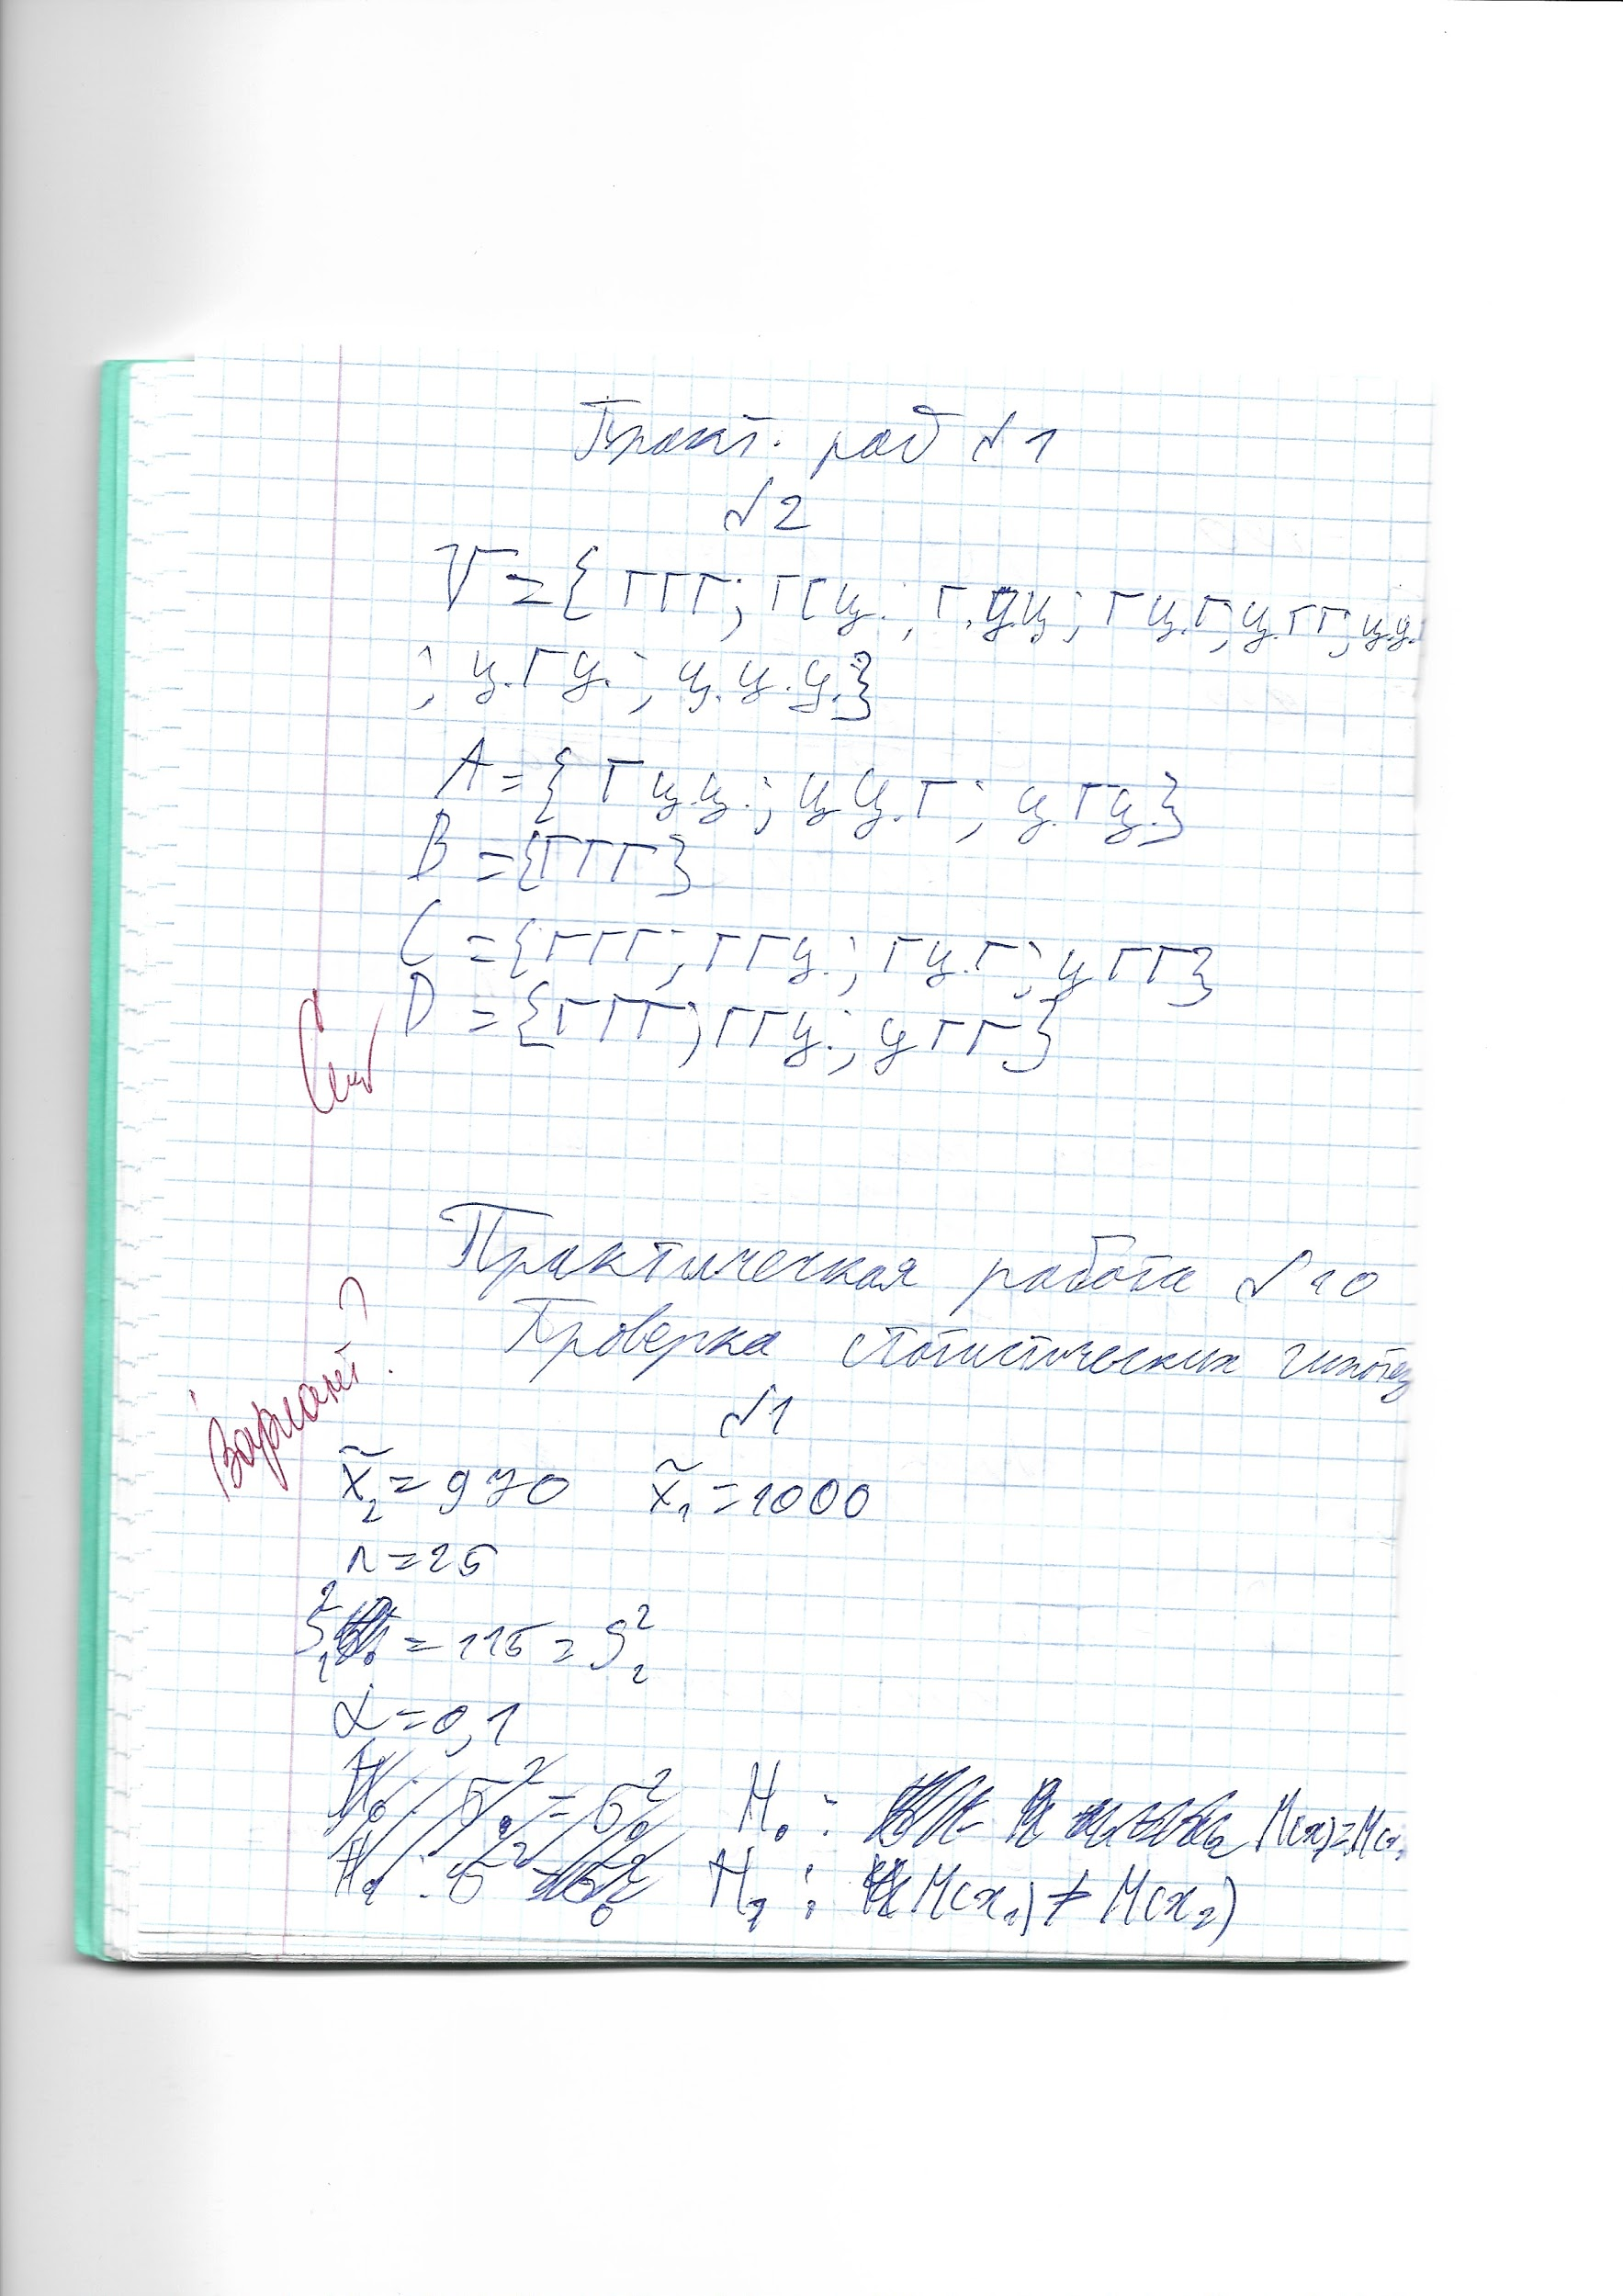 Практ. раб №1
№2
V={ГГГ; ГГЦ.; Г.ЦЦ; ГЦ.Г; Ц.ГГ; Ц.Ц.
; Ц.ГЦ.; Ц.Ц.Ц.}
A={ГЦ.Ц.; ЦЦ.Г; Ц.ГЦ.}
B={ГГГ}
C={ГГГ; ГГЦ.; ГЦ.Г; ЦГГ}
D={ГГГ; ГГЦ.; ЦГГ}
Практическая работа №10
Проверка статистических гипотез
Вариант?
№1
x̃₂=970 x̃₁=1000
n=25
S₁²=115=S₂²
α=0,1
H₀: M(x₁)=M(x₂
H₁: M(x₁)≠M(x₂)